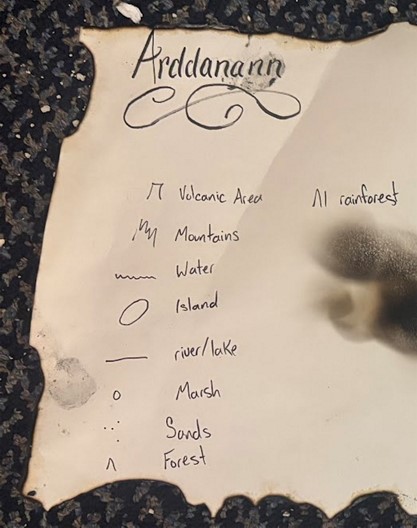 Arddanann
Volcanic Area
Λl rainforest
Mountains
Water
Island
river/lake
Marsh
Sands
Forest